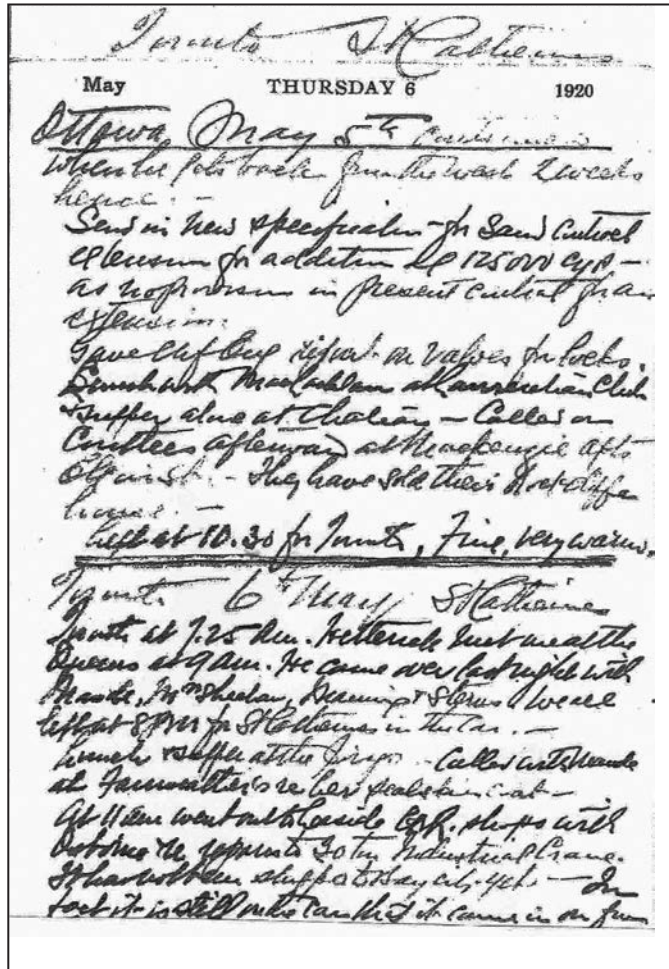 Toronto St Catherines
May THURSDAY 6 1920
Ottawa May 5th continued
when he gets back from the West 2 weeks
hence. —
Send in new specification for Sand Contract
extension for addition of 125000 cyds —
as no provision in present contract for an
extension.
Gave report on valves for locks.
Lunch with MacLachlan at Club
& supper alone at Chateau — Called on
afterward at Mackenzie apts
— They have sold their
house. —
Left at 10.30 for Toronto, Fine, very warm.
Toronto 6th May St Catherines
Toronto at 7.25 am. met me at the
Queens at 9 am. He came over last night with
Maude, Mrs Sheehan, & We all
left at 8 PM for St Catherines in the car. —
Lunch & supper at the — Called with Maude
at Fairweathers re her sealskin coat —
At 11 am went out to Leaside shops with
re repairs to 30 ton Industrial Crane.
It has not been shipped to Bay City yet — In
fact it is still on the cars that it came in on from